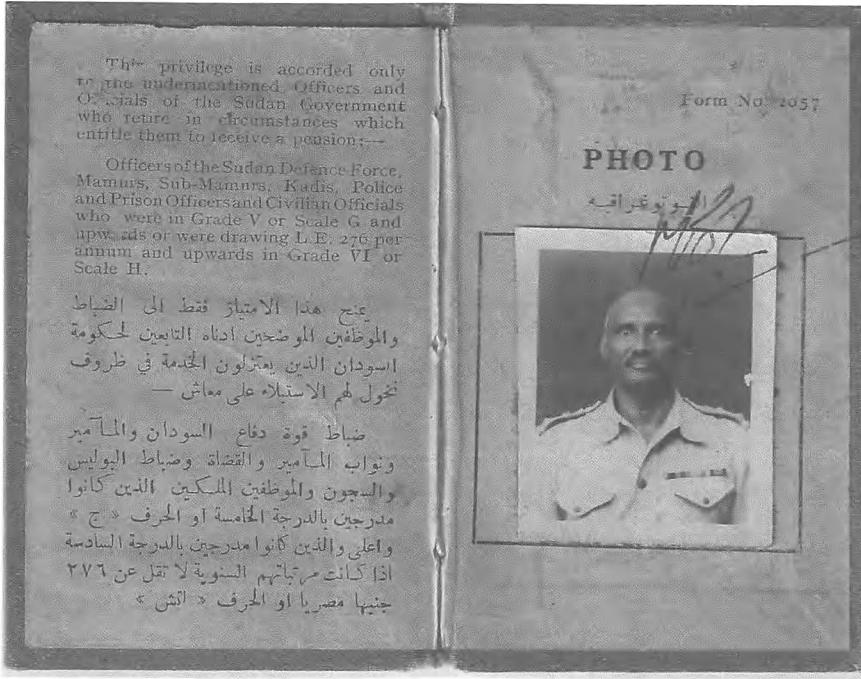 This privilege is accorded only
to the undermentioned Officers and
Officials of the Sudan Government
who retire in circumstances which
entitle them to receive a pension:—
Officers of the Sudan Defence Force,
Mamurs, Sub-Mamurs, Kadis, Police
and Prison Officers and Civilian Officials
who were in Grade V or Scale G and
upwards or were drawing L.E. 276 per
annum and upwards in Grade VI or
Scale H.
يمنح هذا الامتياز فقط الى الضباط
والموظفين الموضحين ادناه التابعين لحكومة
السودان الذين يعتزلون الخدمة في ظروف
تخول لهم الاستيلاء على معاش —
ضباط قوة دفاع السودان والمآمير
ونواب المآمير والقضاة وضباط البوليس
والسجون والموظفين الملكيين الذين كانوا
مدرجين بالدرجة الخامسة او الحرف « ج »
واعلى والذين كانوا مدرجين بالدرجة السادسة
اذا كانت مرتباتهم السنوية لا تقل عن ٢٧٦
جنيها مصريا او الحرف « اتش »
Form No. 2057
PHOTO
الفوتوغرافيه